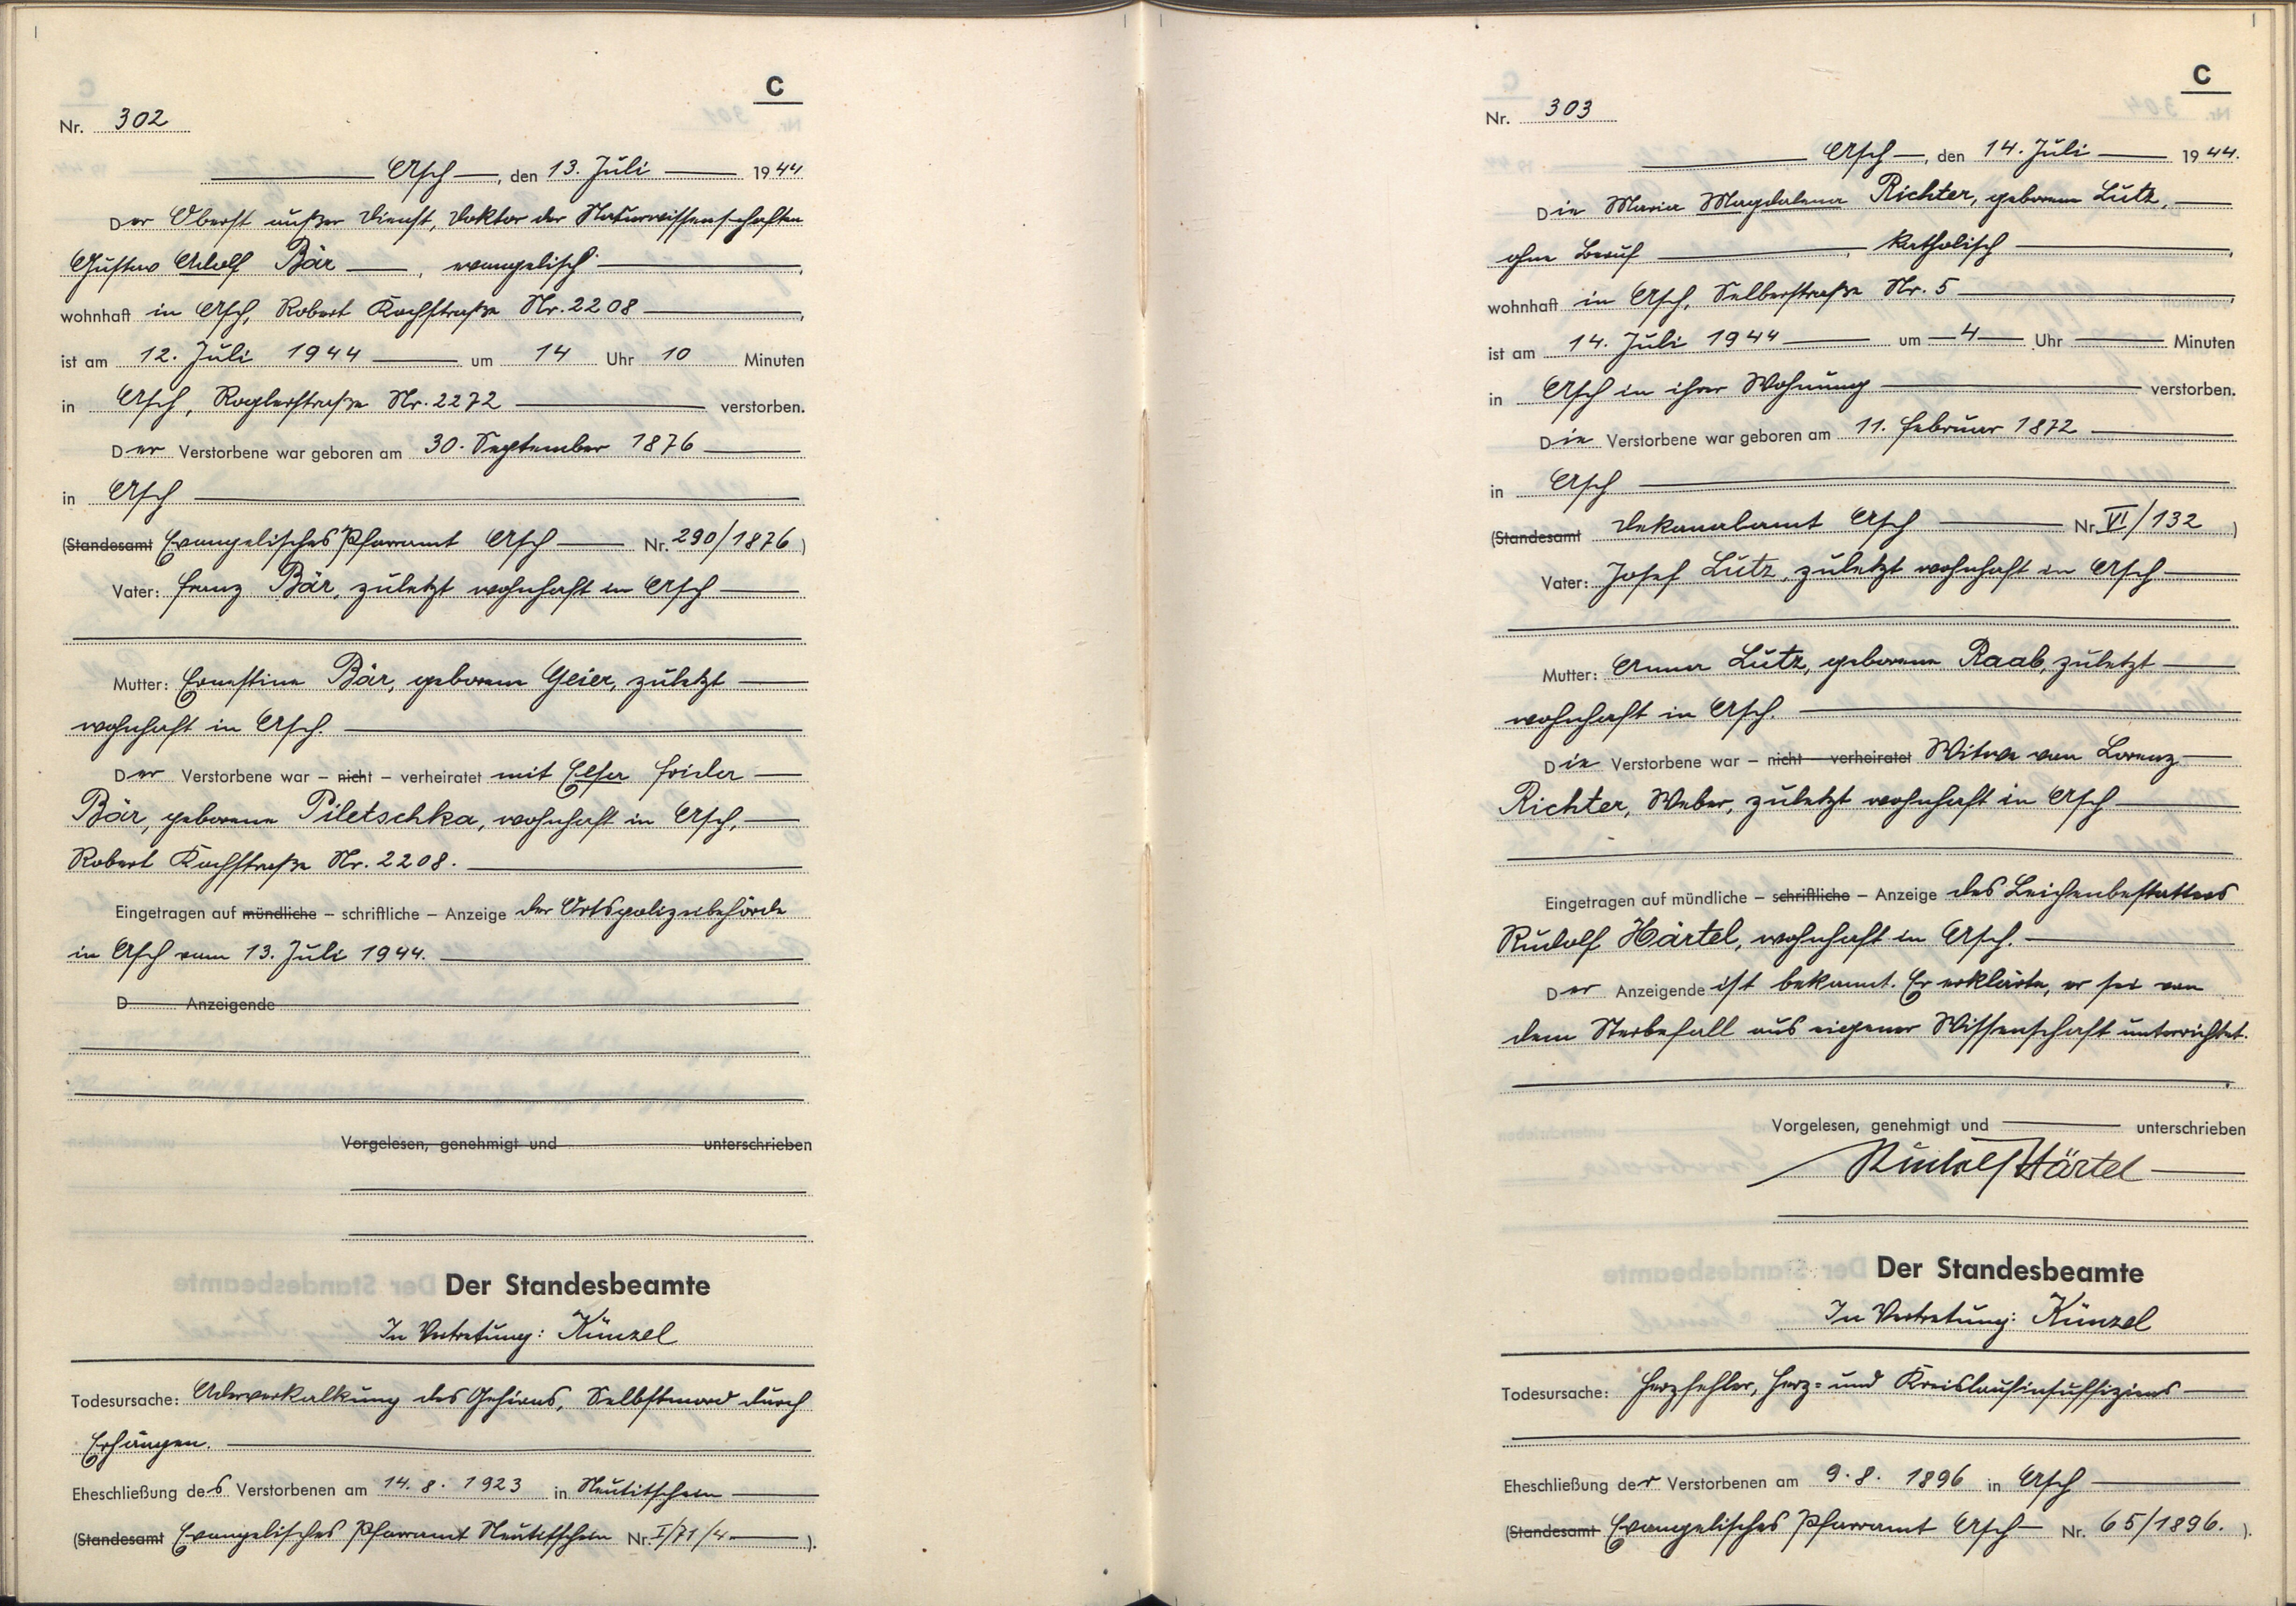 C
Nr. 302
Asch, den 13. Juli 1944
Der Oberst außer Dienst, Doktor der Naturwissenschaften
Gustav Adolf Bär, evangelisch,
wohnhaft in Asch, Robert Kochstraße Nr. 2208,
ist am 12. Juli 1944 um 14 Uhr 10 Minuten
in Asch, Roglerstraße Nr. 2272 verstorben.
Der Verstorbene war geboren am 30. September 1876
in Asch
(Standesamt Evangelisches Pfarramt Asch Nr. 290/1876)
Vater: Franz Bär, zuletzt wohnhaft in Asch
Mutter: Ernestine Bär, geborene Geier, zuletzt
wohnhaft in Asch.
Der Verstorbene war – nicht – verheiratet mit Elsa Frieda
Bär, geborene Piletschka, wohnhaft in Asch,
Robert Kochstraße Nr. 2208.
Eingetragen auf mündliche – schriftliche – Anzeige der Ortspolizeibehörde
in Asch vom 13. Juli 1944.
D Anzeigende
Vorgelesen, genehmigt und unterschrieben
Der Standesbeamte
In Vertretung: Künzel
Todesursache: Aderverkalkung des Gehirns, Selbstmord durch
Erhängen.
Eheschließung des Verstorbenen am 14. 8. 1923 in Neutitschein
(Standesamt Evangelisches Pfarramt Neutitschein Nr. I/71/4).
C
Nr. 303
Asch, den 14. Juli 1944.
Die Maria Magdalena Richter, geborene Lutz,
ohne Beruf, katholisch,
wohnhaft in Asch, Selberstraße Nr. 5,
ist am 14. Juli 1944 um 4 Uhr Minuten
in Asch in ihrer Wohnung verstorben.
Die Verstorbene war geboren am 11. Februar 1872
in Asch
(Standesamt Dekanalamt Asch Nr. VI/132)
Vater: Josef Lutz, zuletzt wohnhaft in Asch
Mutter: Anna Lutz, geborene Raab, zuletzt
wohnhaft in Asch.
Die Verstorbene war – nicht – verheiratet Witwe von Lorenz
Richter, Weber, zuletzt wohnhaft in Asch
Eingetragen auf mündliche – schriftliche – Anzeige des Leichenbestatters
Rudolf Härtel, wohnhaft in Asch.
Der Anzeigende ist bekannt. Er erklärte, er sei von
dem Sterbefall aus eigener Wissenschaft unterrichtet.
Vorgelesen, genehmigt und unterschrieben
Rudolf Härtel
Der Standesbeamte
In Vertretung: Künzel
Todesursache: Herzfehler, Herz- und Kreislaufinsuffiziens
Eheschließung der Verstorbenen am 9. 8. 1896 in Asch
(Standesamt Evangelisches Pfarramt Asch Nr. 65/1896.).